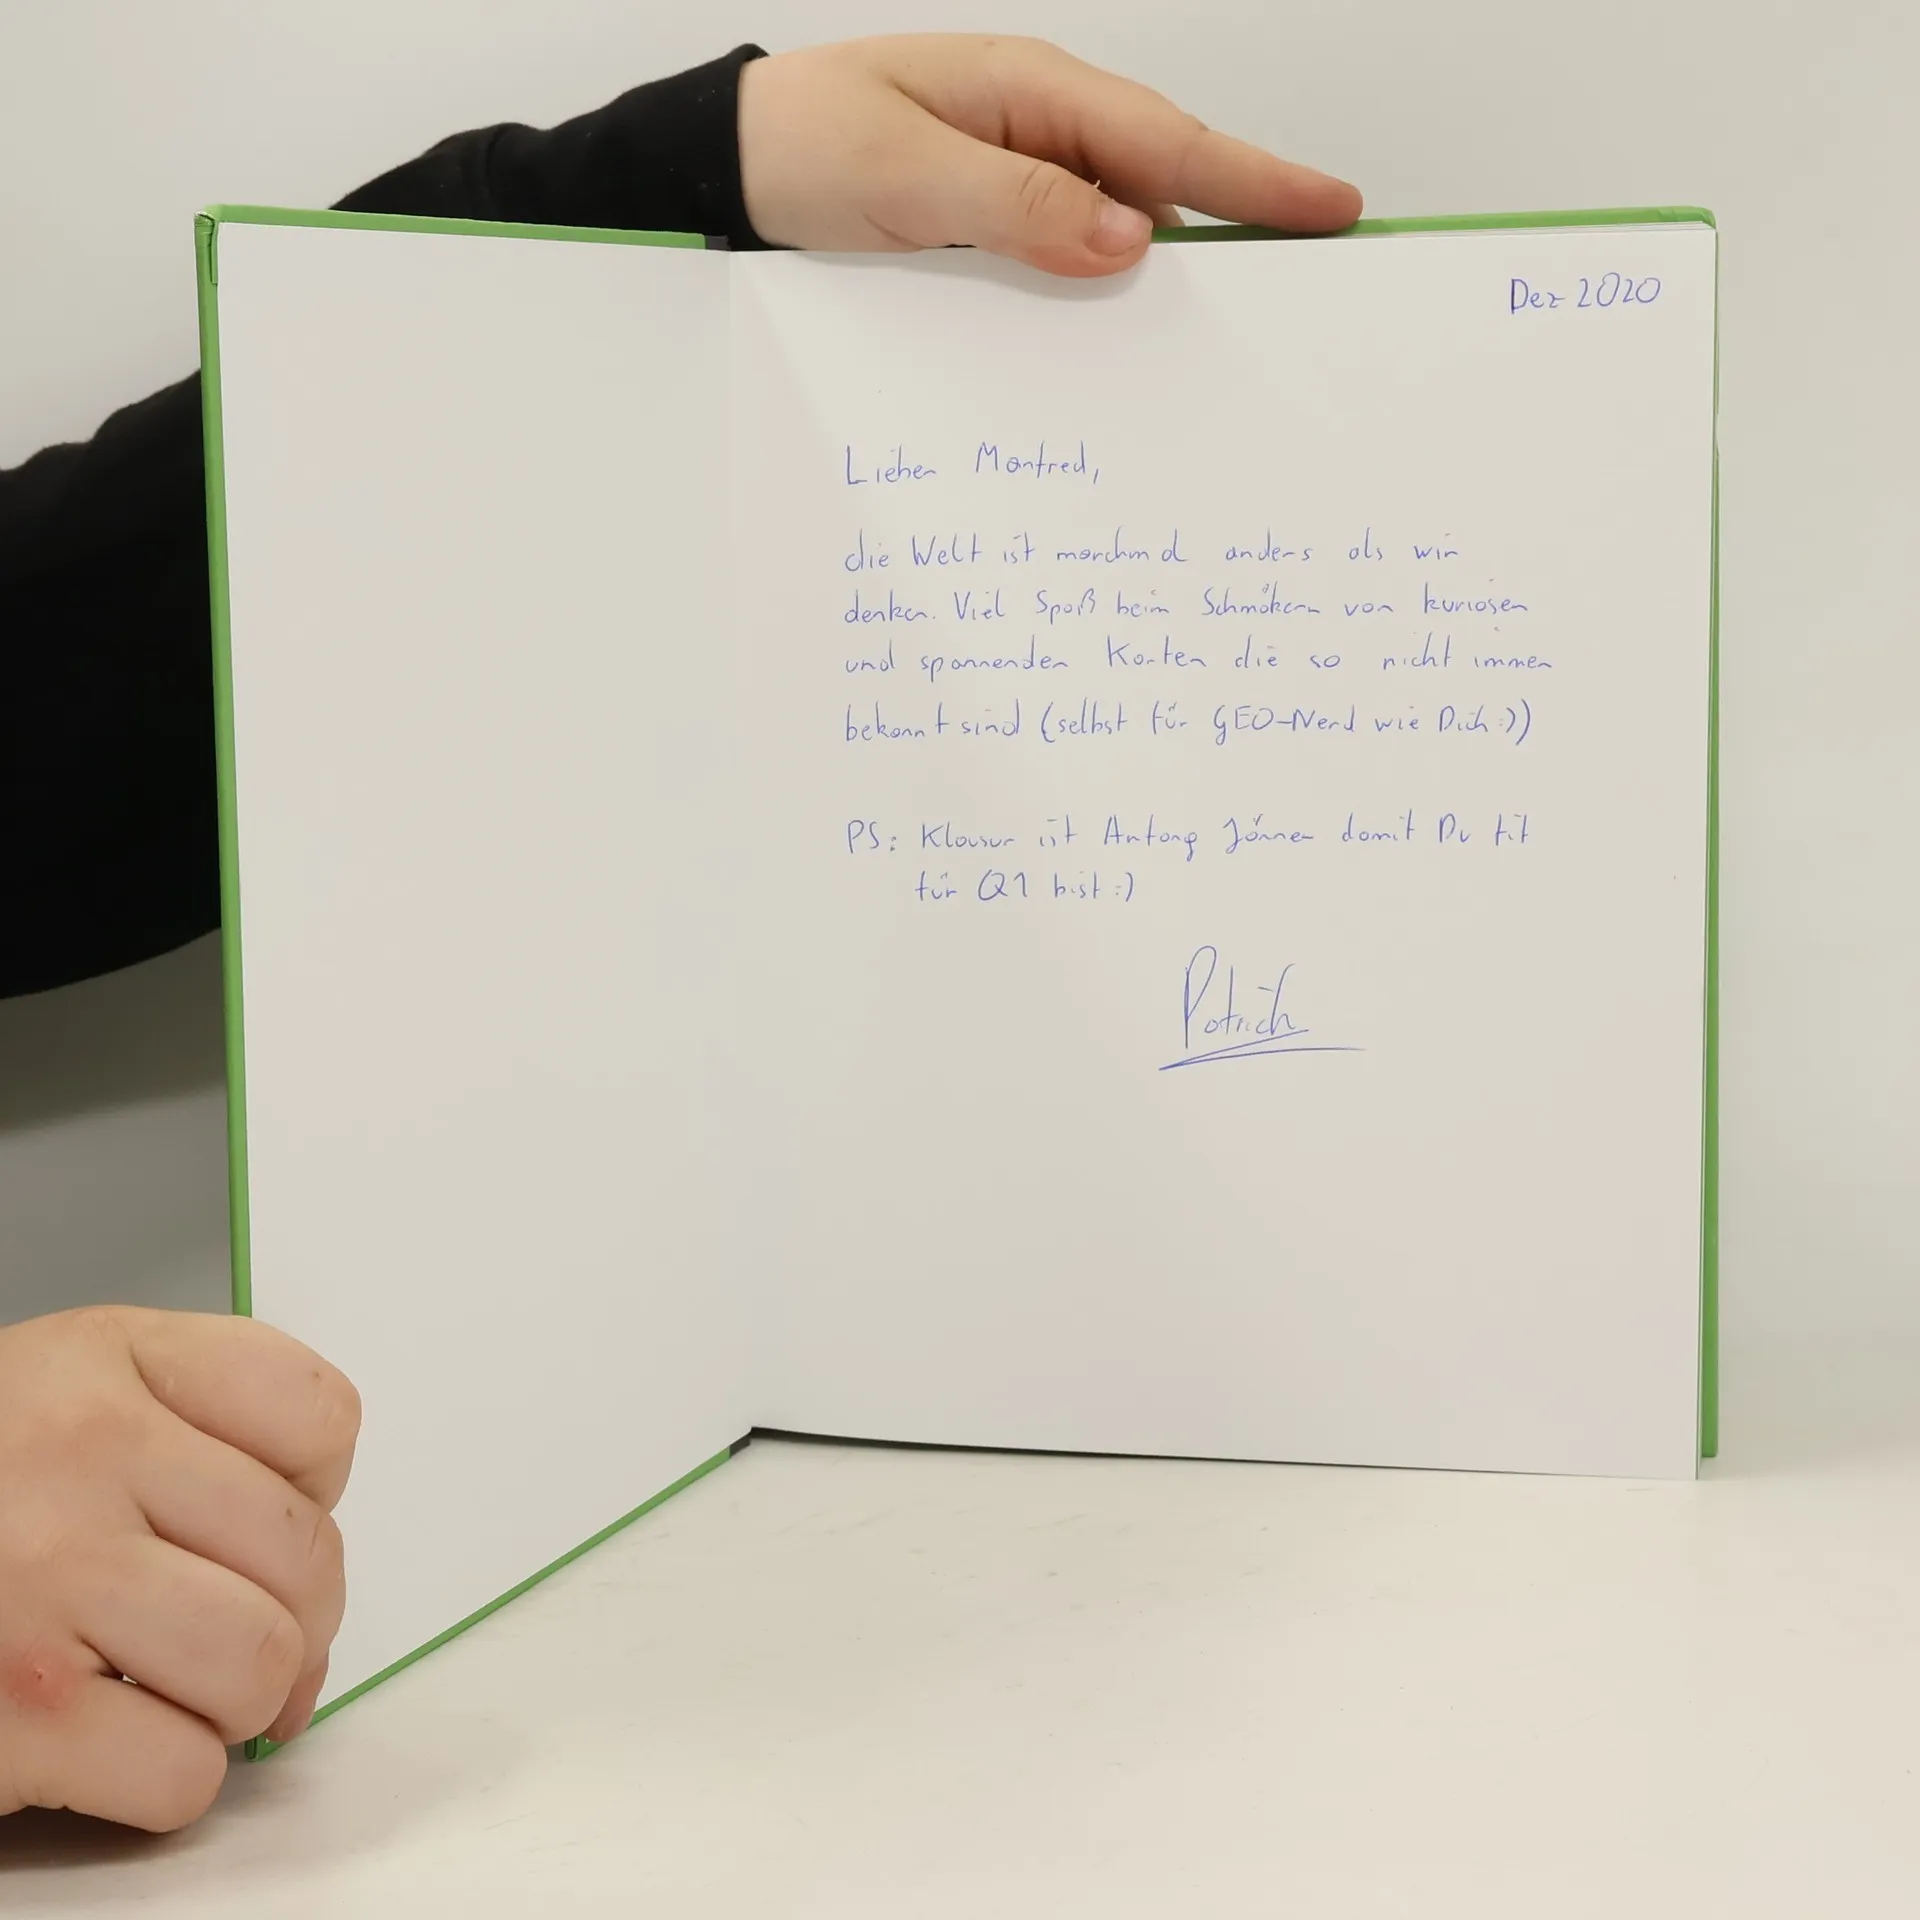 Dez 2020
Lieber Manfred,
die Welt ist manchmal anders als wir
denken. Viel Spaß beim Schmökern von kuriosen
und spannenden Karten die so nicht immer
bekannt sind (selbst für GEO-Nerd wie Dich :))
PS: Klausur ist Anfang Jänner damit Du fit
für Q1 bist :)
Patrick